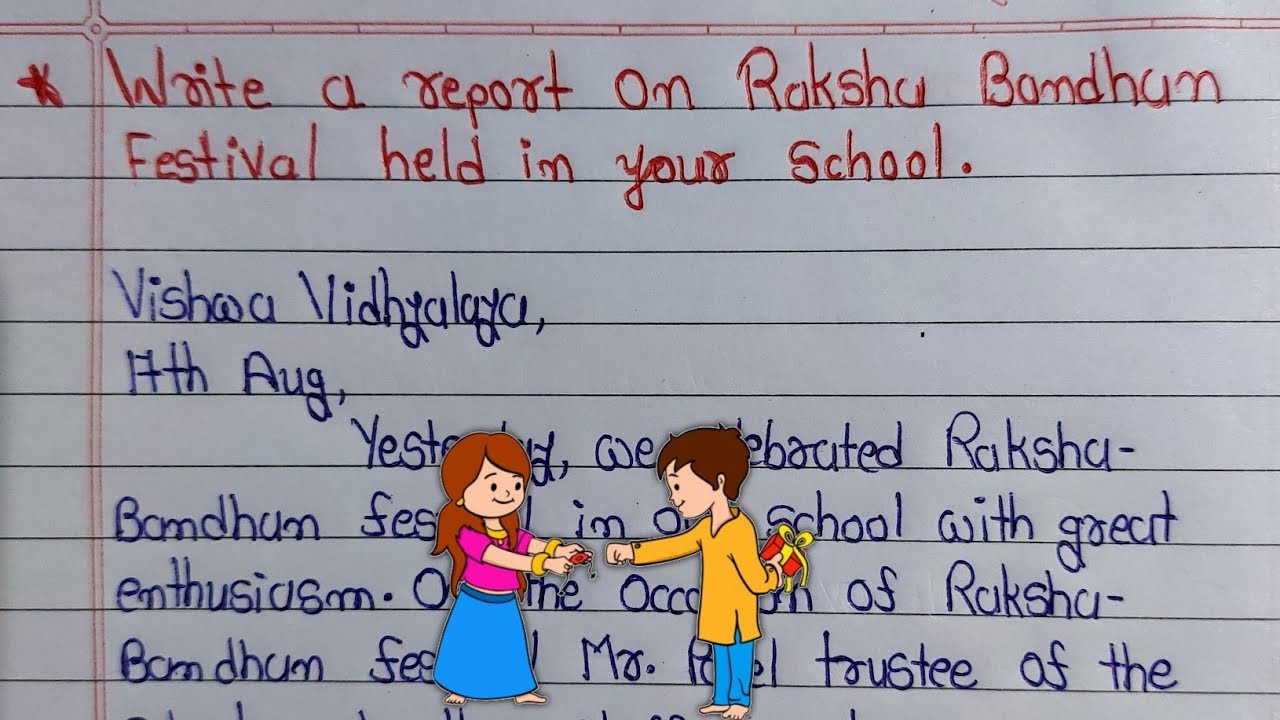 * Write a report on Raksha Bandhan
Festival held in your School.
Vishwa Vidhyalaya,
17th Aug,
Yesterday, we celebrated Raksha-
Bandhan festival in our school with great
enthusiasm. On the occasion of Raksha-
Bandhan festival Mr. trustee of the